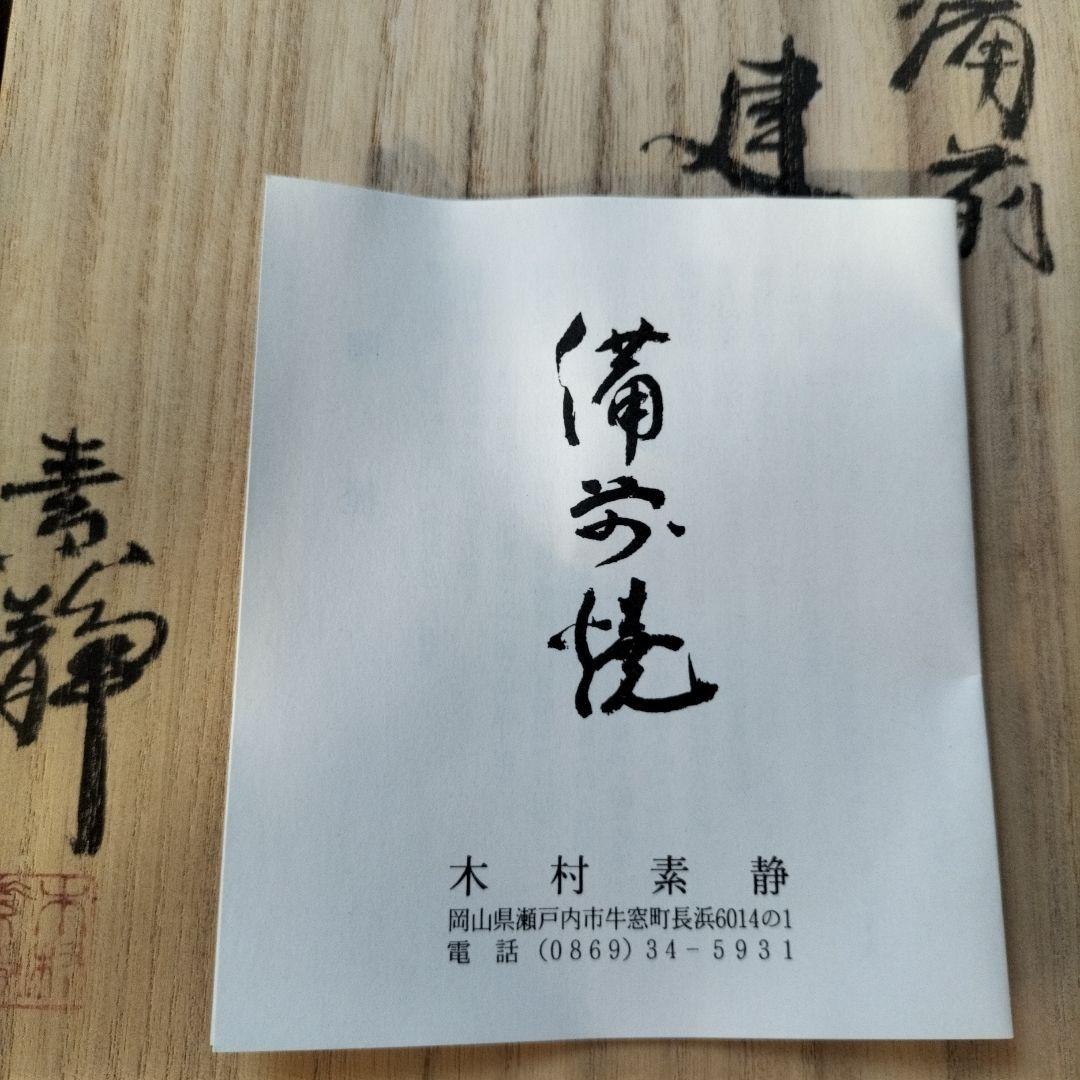 備前
建
備前焼
木村素静
岡山県瀬戸内市牛窓町長浜6014の1
電話(0869)34-5931
素静